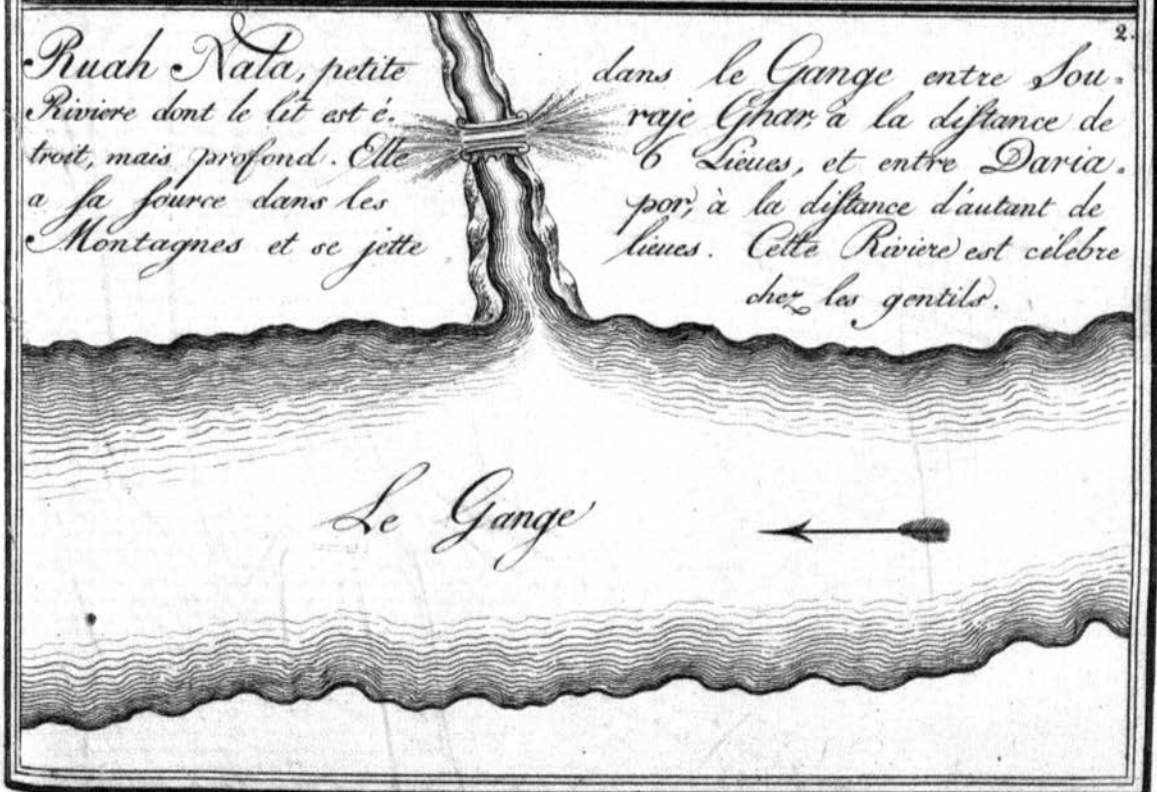 2.
Ruah Nala, petite
Riviere dont le lit est é.
troit, mais profond. Elle
a sa source dans les
Montagnes et se jette
dans le Gange entre Sou-
raje Ghar, à la distance de
6 Lieues, et entre Daria-
por, à la distance d'autant de
lieues. Cette Riviere est célebre
chez les gentils.
Le Gange